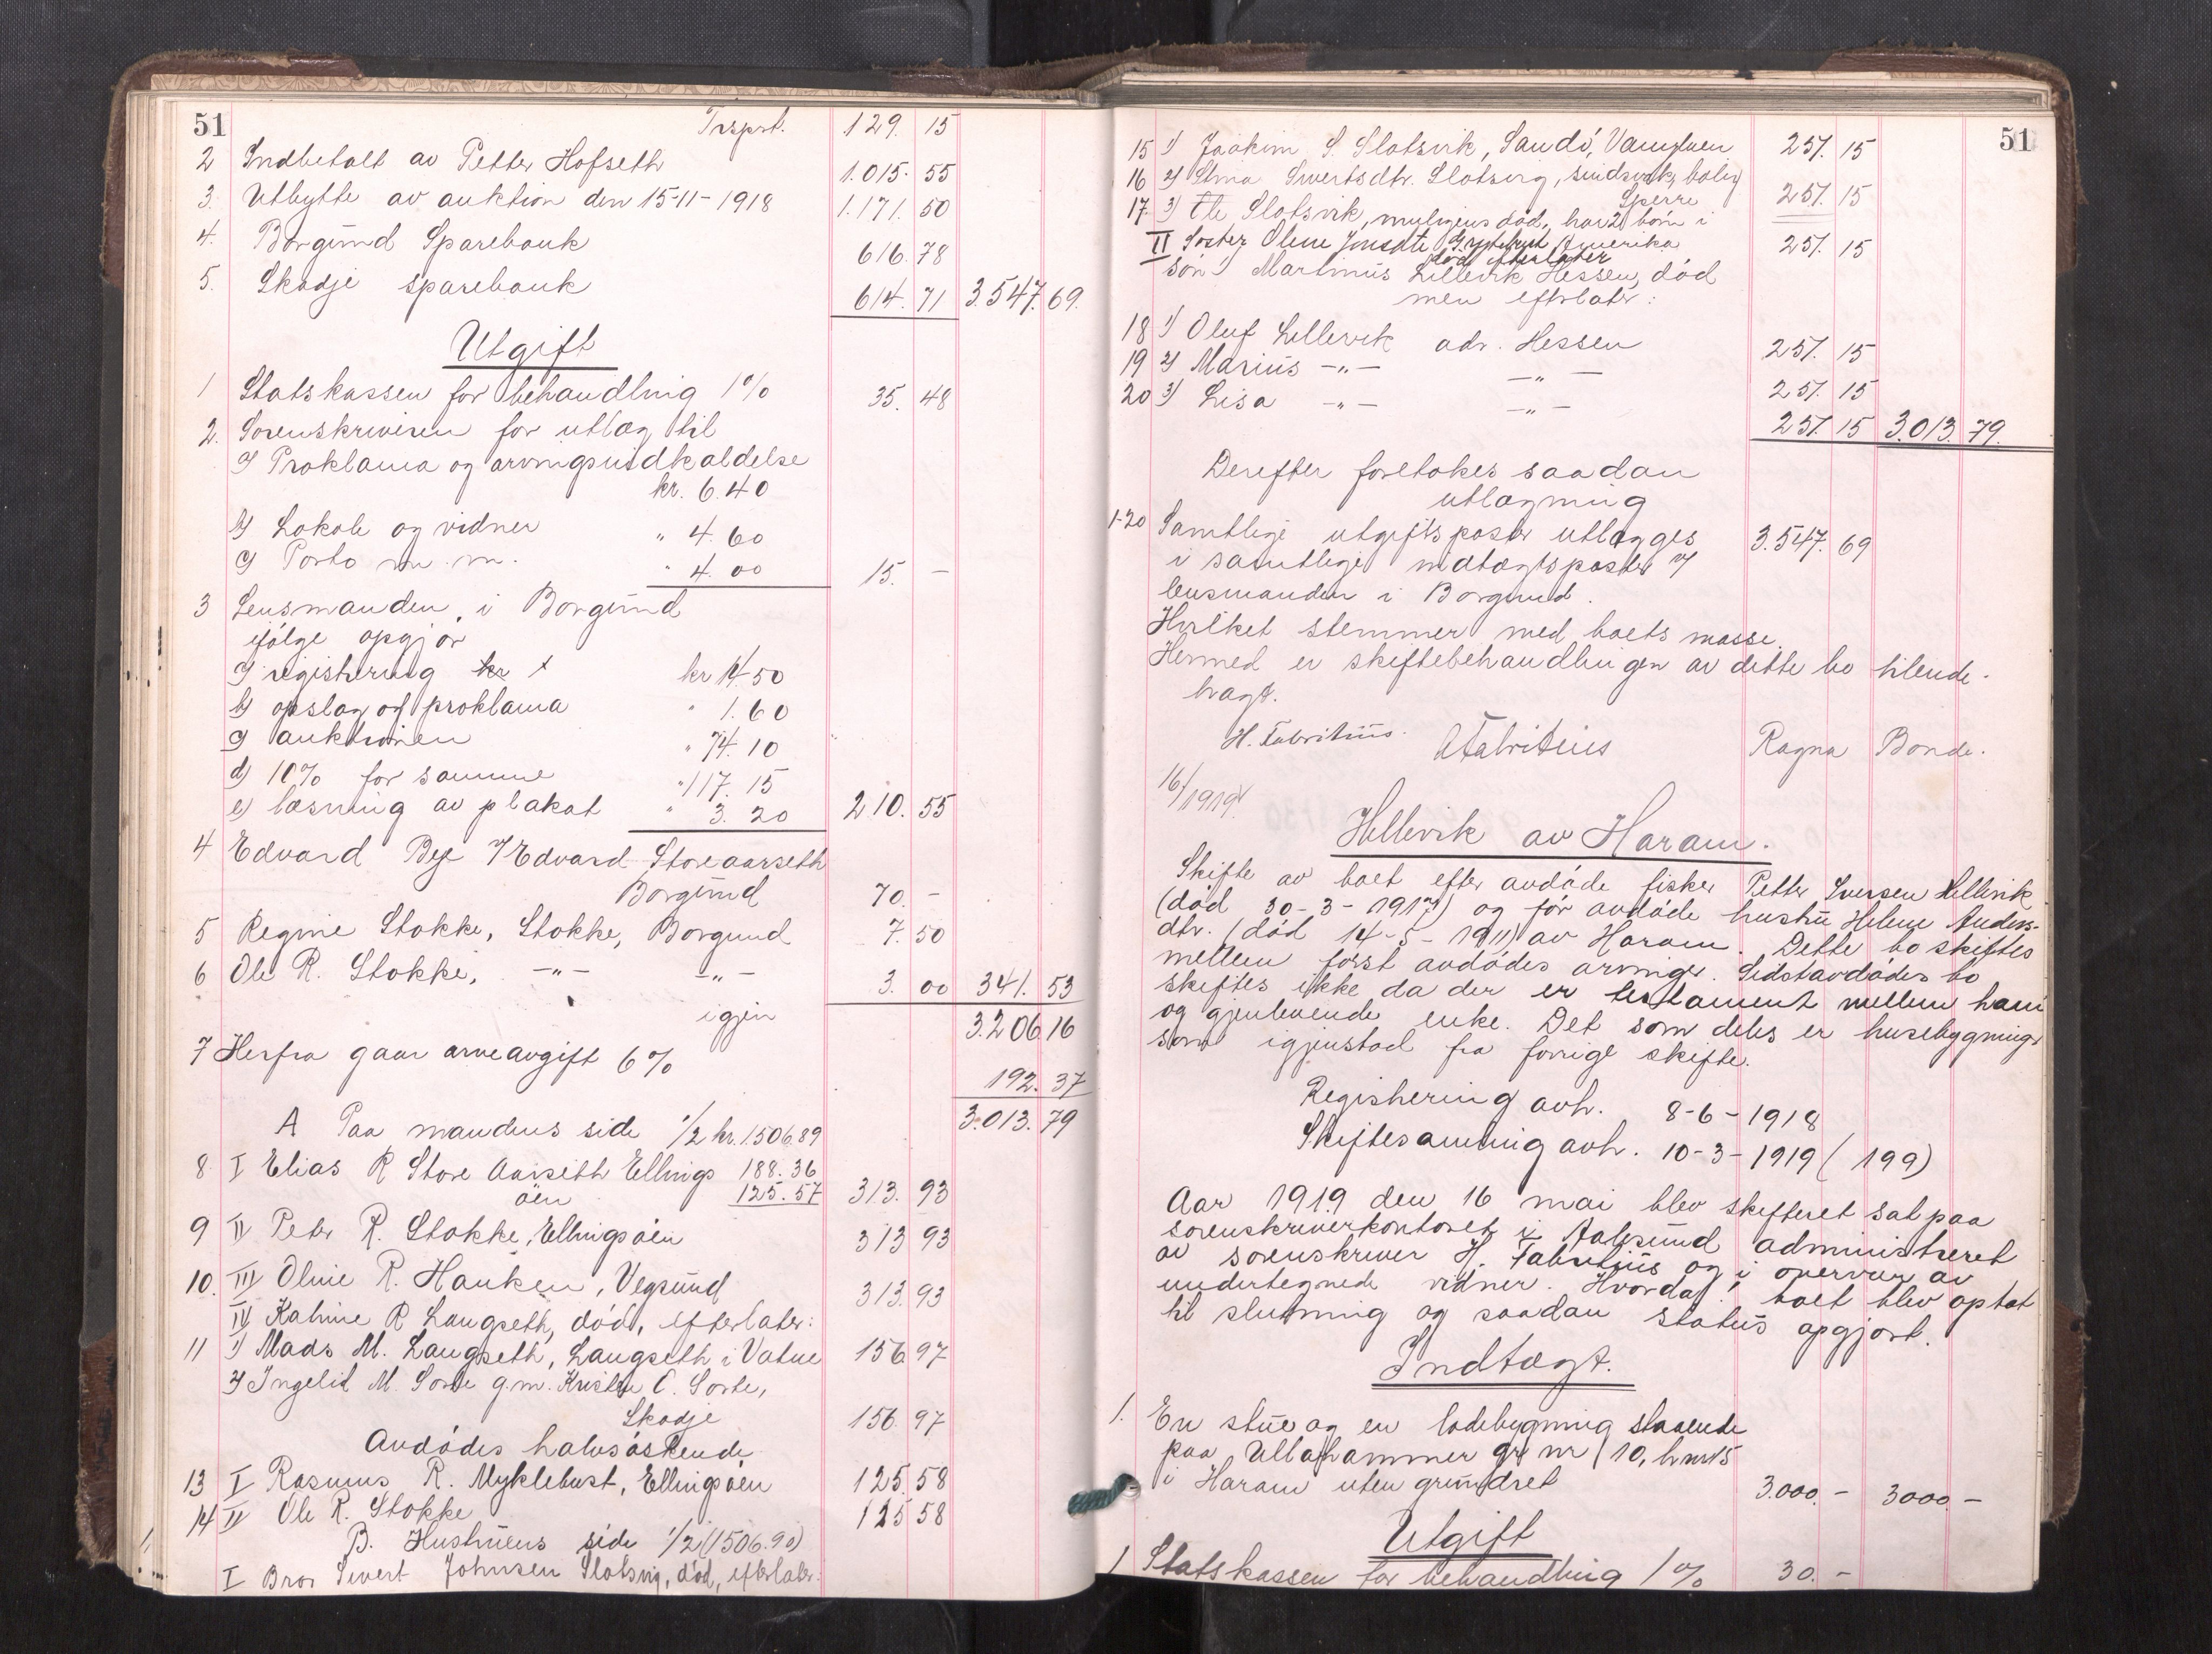 51
Trsport. 129. 15
2 Indbetalt av Petter Hofseth 1.015. 55
3. Utbytte av auktion den 15-11-1918 1.171. 50
4. Borgund Sparebank 616. 78
5. Skodje sparebank 614. 71 3.547. 69.
Utgift
1 Statskassen for behandling 1% 35. 48
2. Sorenskriveren for utlæg til
a) Proklama og arvingsindkaldelse
kr. 6.40
b) Lokale og vidner " 4.60
c) Porto m.m. " 4.00 15. -
3 Lensmanden i Borgund
ifølge opgjør
a) registrering kr kr 14.50
b) opslag og proklama " 1.60
c) auktionen " 74.10
d) 10% for samme " 117.15
e) læsning av plakat " 3.20 210. 55
4 Edvard Bye / Edvard Storeaarseth
Borgund 70. -
5 Regine Stokke, Stokke, Borgund 7. 50
6 Ole R. Stokke, -"- -"- 3. 00 341. 53
igjen 3.206 16
7 Herfra gaar arveavgift 6% 192. 37
3.013. 79
A Paa mandens side 1/2 kr. 1.506.89
8. I Elias R Store Aarseth Ellings 188.36
øen 125.57 313. 93
9 II Peter R. Stokke, Ellingsøen 313 93
10. III Oline R. Hauken, Vegsund 313. 93
IV Katrine R Langseth, død, efterlater:
11 1) Mads M. Langseth, Langseth i Vatne 156 97
2) Ingelid M. Sorte g.m. Kristen O. Sorte,
Skodje 156. 97
Avdødes halvsøskende
13 I Rasmus R. Myklebust, Ellingsøen 125. 58
14 II Ole R. Stokke 125 58
B. Hustruens side 1/2 (1506.90)
I Bror Sivert Johnsen Slotsvig, død, efterlater:
51
15 1) Joakim S. Slotsvik, Sandø, 251. 15
16 2) Sivertsdtr. Slotsvig,
Sperre 251. 15
17 3) Ole Slotsvik, muligens død, har 2 børn i
Amerika 251. 15
II Søster Oline Jonsdtr
død efterlater
søn 1 Martinus Lillevik Hessen, død
men efterlater:
18 1) Oluf Lillevik adr. Hessen 251. 15
19 2) Marius -"- -"- 251. 15
20 3) Lisa -"- -"- 251. 15 3.013. 79.
Derefter foretokes saadan
utlægning
1-20 Samtlige utgiftsposter utlægges 3.547. 69
i samtlige indtægtsposter v/
lensmanden i Borgund.
Hvilket stemmer med boets masse.
Hermed er skiftebehandlingen av dette bo tilende-
bragt.
H. Fabritius. Ragna Bonde.
16/5 1919.
Hellevik av Haram.
Skifte av boet efter avdøde fisker Petter Iversen Hellevik
(død 30-3-1917) og før avdøde hustru Helene Anders-
dtr. (død 14-5-1911) av Haram. Dette bo skiftes
mellem først avdødes arvinger. Sidstavdødes bo
skiftes ikke da der er testament mellem ham
og gjenlevende enke. Det som deles er husebygninger
som igjenstod fra forrige skifte.
Registrering avh. 8-6-1918
Skiftesamling avh. 10-3-1919 (199)
Aar 1919 den 16 mai blev skifteret sat paa
sorenskriverkontoret i Aalesund administreret
av sorenskriver H. Fabritius og i overvær av
undertegnede vidner. Hvorda boet blev optat
til slutning og saadan status opgjort.
Indtægt.
1. En stue og en ladebygning staaende
paa Ullahammer gr nr 10, brnr 5
i Haram uten grundret 3.000. - 3000. -
Utgift
1 Statskassen for behandling 1% 30. -